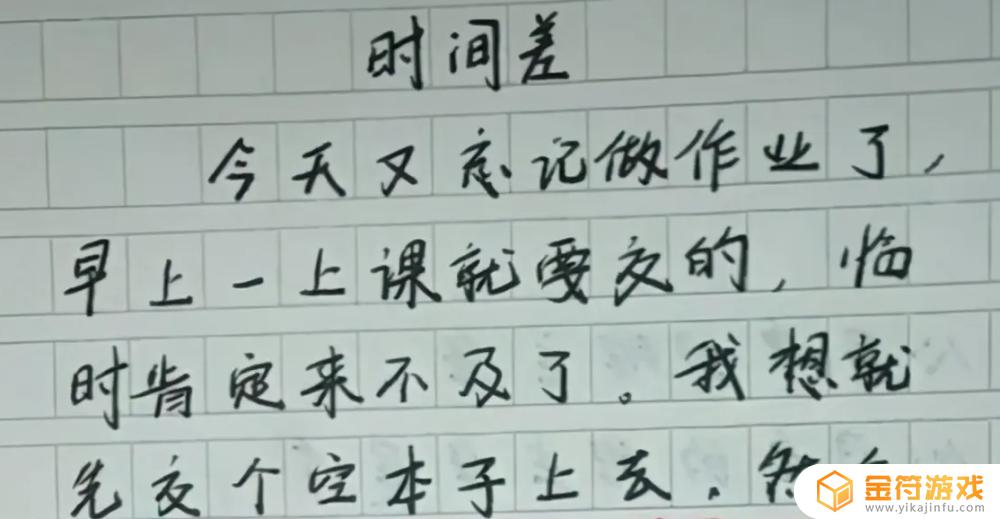 时间差
今天又忘记做作业了,
早上一上课就要交的,临
时肯定来不及了。我想就
先交个空本子上去,然
金符游戏
www.yikajinfu.com